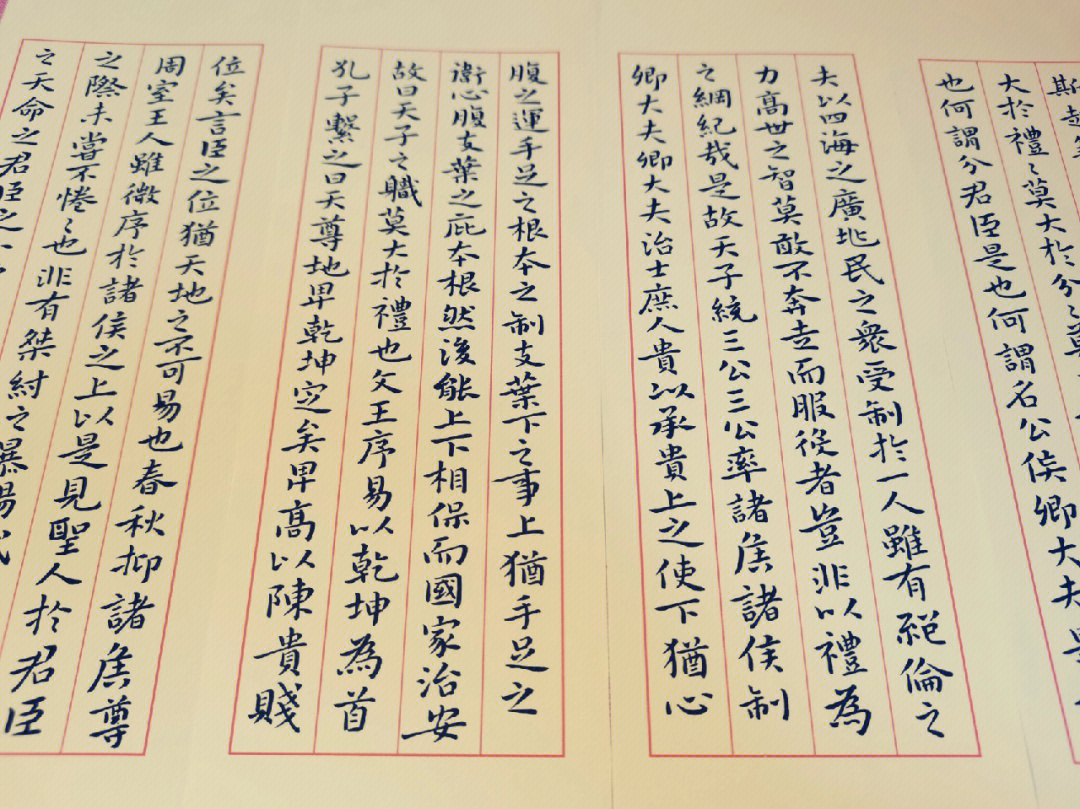 斯趙
大於禮〻莫大於分〻莫
也何謂分君臣是也何謂名公侯卿大夫是
夫以四海之廣兆民之衆受制於一人雖有絕倫之
力高世之智莫敢不奔走而服役者豈非以禮為
之綱紀哉是故天子統三公三公率諸侯諸侯制
卿大夫卿大夫治士庶人貴以承貴上之使下猶心
腹之運手足之根本之制支葉下之事上猶手足之
衛心腹支葉之庇本根然後能上下相保而國家治安
故曰天子之職莫大於禮也文王序易以乾坤為首
孔子繫之曰天尊地卑乾坤定矣卑高以陳貴賤
位矣言臣之位猶天地之不可易也春秋抑諸侯尊
周室王人雖微序於諸侯之上以是見聖人於君臣
之際未嘗不惓〻也非有桀紂之暴湯武
之天命之君臣之